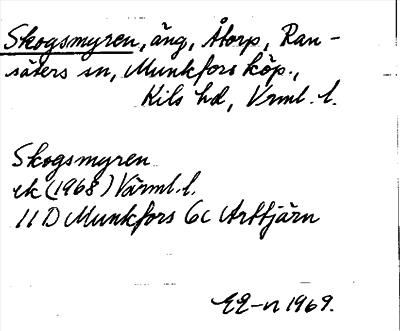 Skogsmyren, äng, Åtorp, Ran-
säters sn, Munkfors köp.,
Kils hd, Vrml. l.
Skogsmyren
ek (1968) Värml. l.
11 D Munkfors 6c Arttjärn
1969.